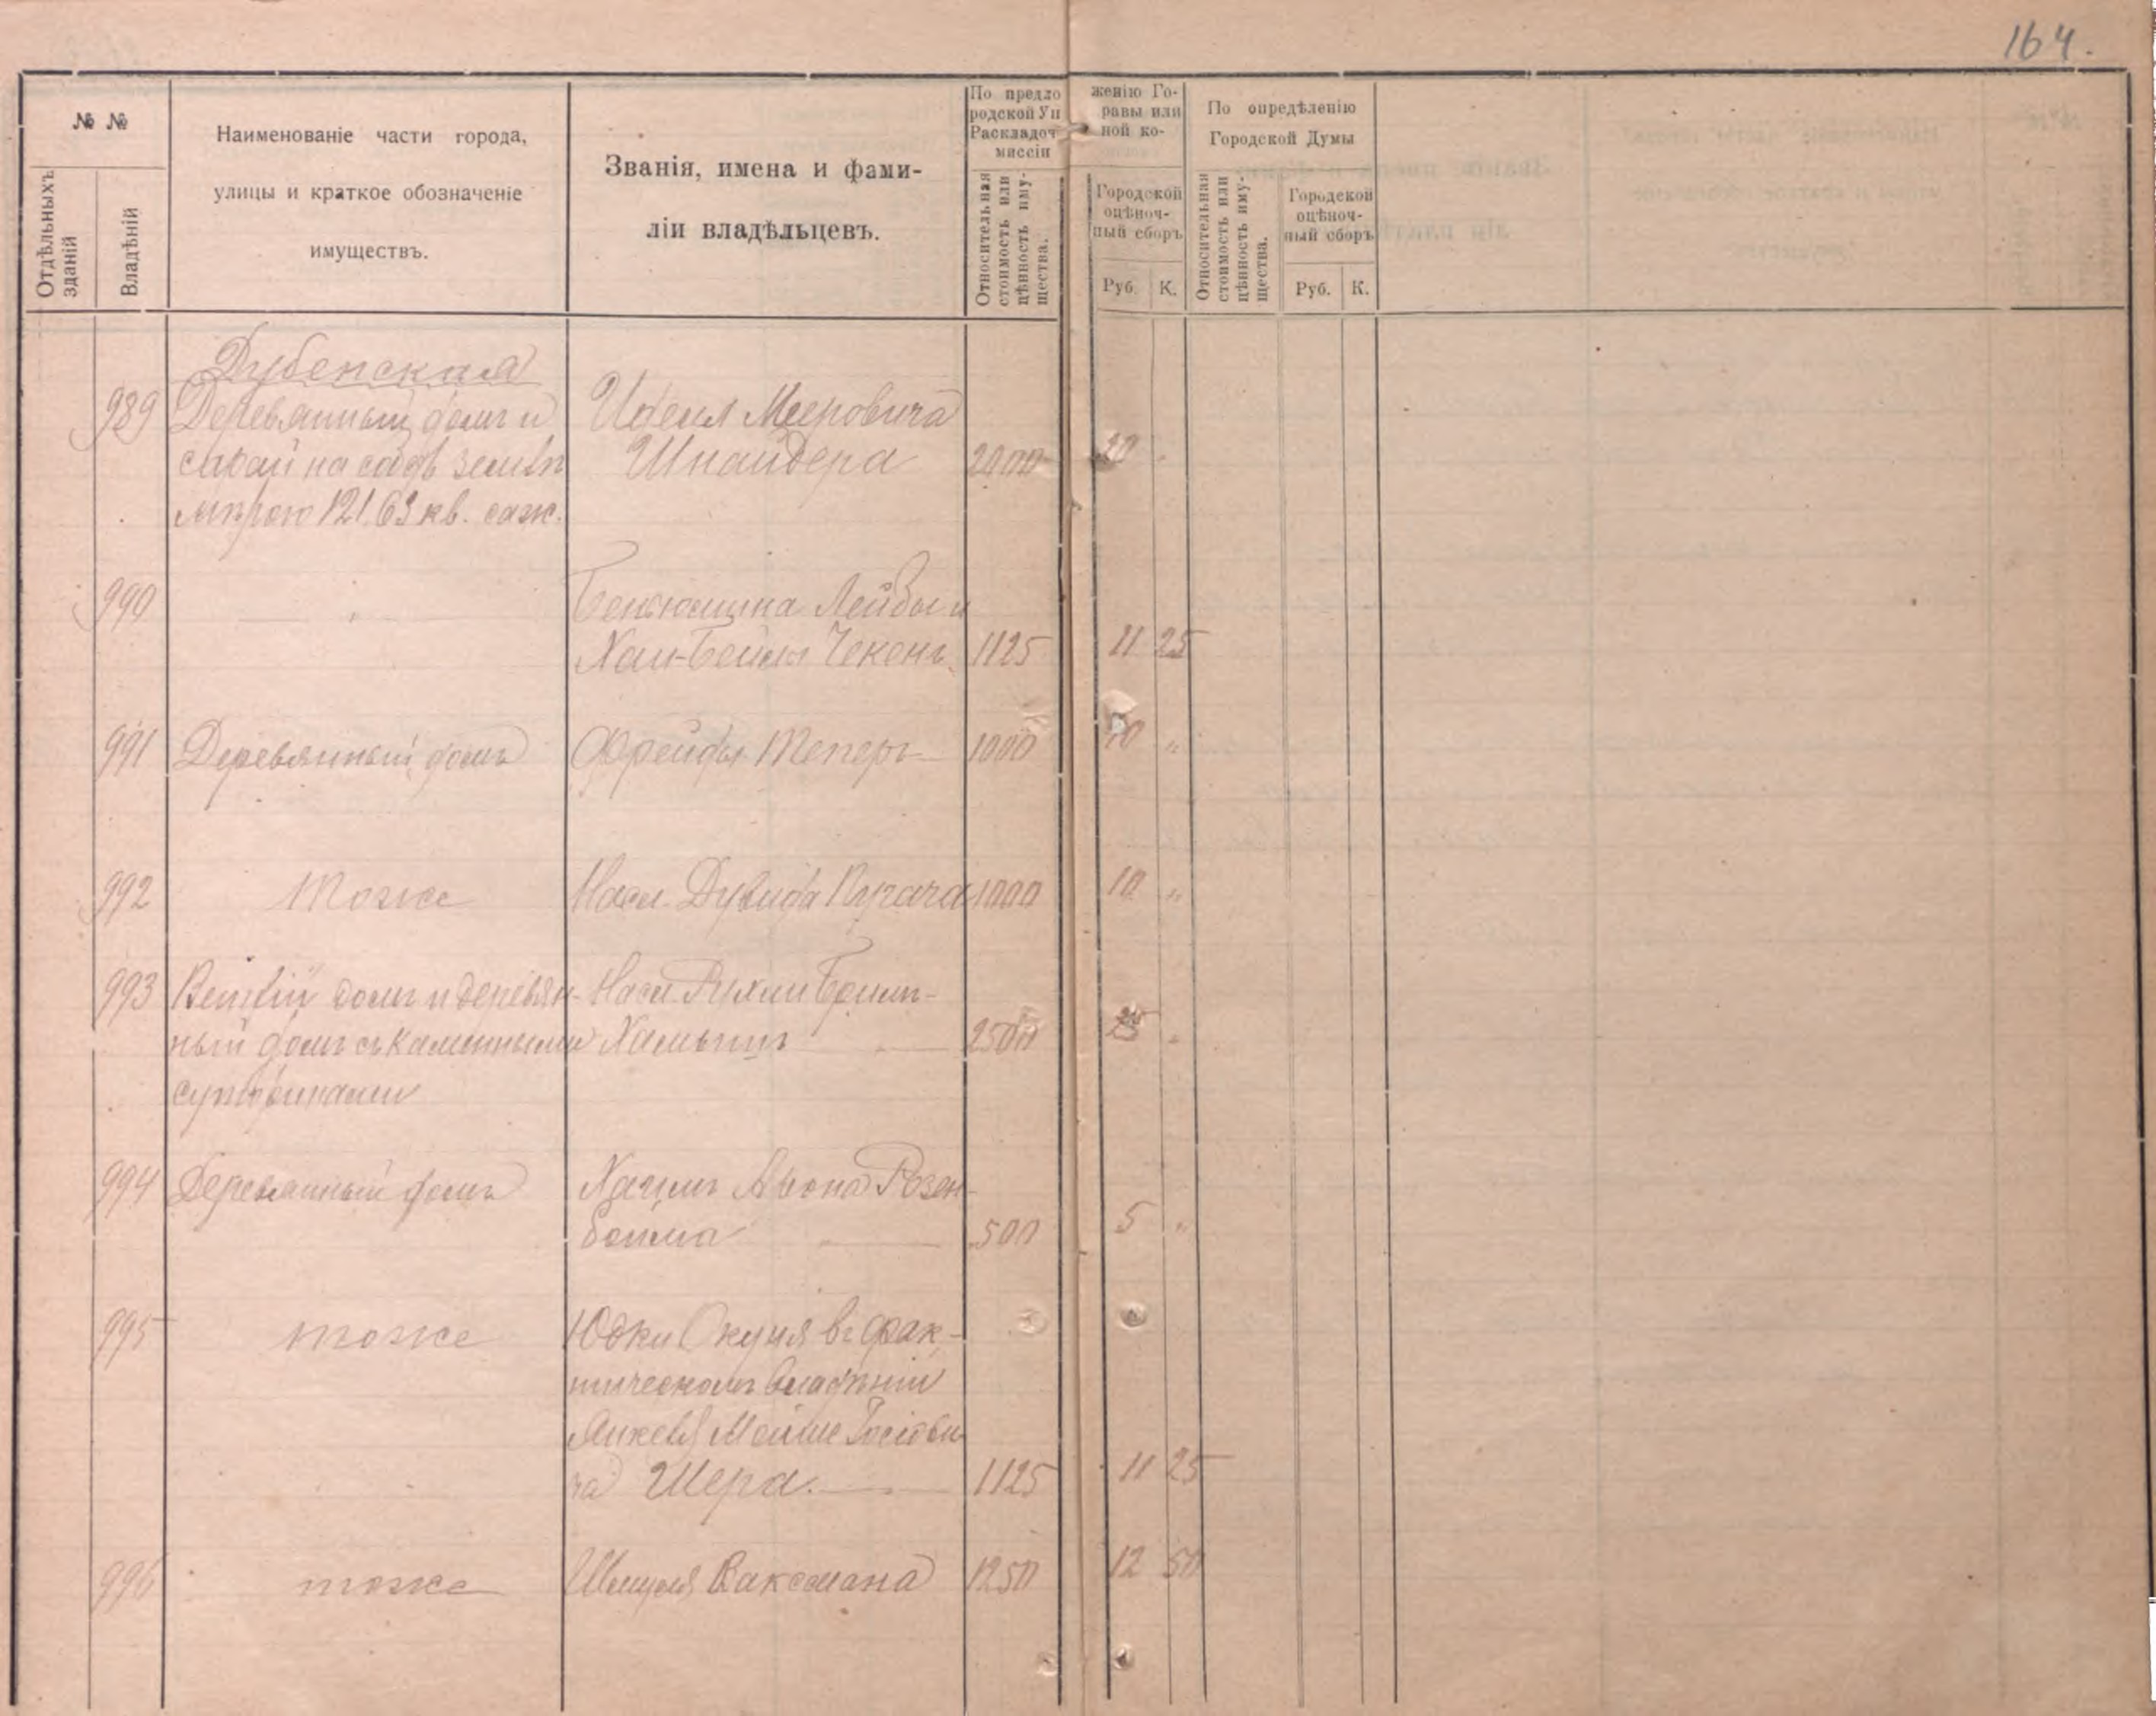 164.
№ №
Отдѣльныхъ зданій
Владѣній
Наименованіе части города,
улицы и краткое обозначеніе
имуществъ.
Званія, имена и фами-
ліи владѣльцевъ.
По предло
женію Го-
родской Уп
равы или
Раскладоч
ной ко-
миссіи
Относительная
стоимость или
цѣнность иму-
щества.
Городской
оцѣноч-
ный сборъ
Руб. К.
По опредѣленію
Городской Думы
Относительная
стоимость или
цѣнность иму-
щества.
Городской
оцѣноч-
ный сборъ
Руб. К.
Дубенская
989 Деревянный домъ и Мееровича
сарай на землѣ Шнайдера 2000 20 "
мѣрою 121,63 кв. саж.
990 " Лейбы и
Хаи-Бейлы 1125 11 25
991 Деревянный домъ Фрейды Теперъ 1000 10 "
992 Тоже Насл. Дувида 1000 10 "
993 Ветхій домъ и деревян- Насл. Рухли
ный домъ съ каменными 2500 25 "
994 Деревянный домъ Арона Розен-
бойма 500 5 "
995 тоже Юдки Окуня въ фак-
тическомъ владѣніи
Мойше
ча Шера. 1125 11 25
996 тоже Шмуля Ваксмана 1250 12 50